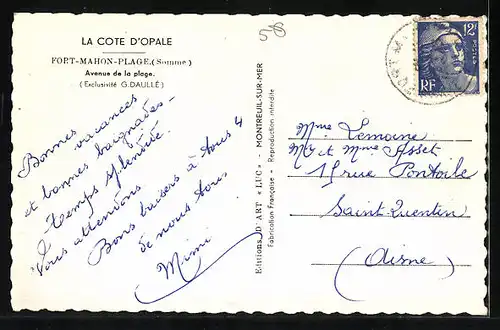 58
LA COTE D'OPALE
FORT-MAHON-PLAGE.(Somme)
Avenue de la plage.
(Exclusivité G.DAULLÉ)
Bonnes vacances
et bonnes baignades -
temps splendide.
Vous attendons
Bons baisers à tous 4
de nous tous
Mimi
Editions D'ART "LUC" - MONTREUIL-SUR-MER
Fabrication Française - Reproduction interdite
12F
RF
POSTES
Mme Lemoine
Mr et Mme Asset
15 rue Pontoile
Saint-Quentin
(Aisne)